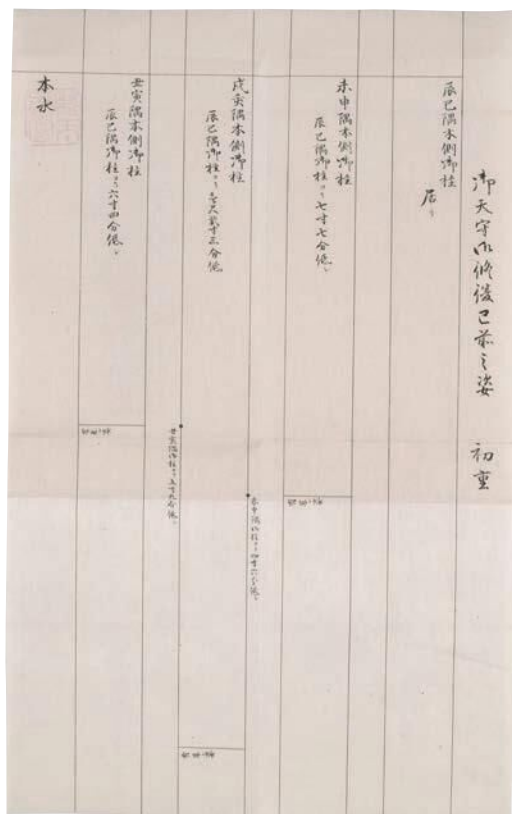 御天守御修復已前之姿　初重
辰巳隅本側御柱
居り
未申隅本側御柱
辰巳隅御柱より七寸七分低し
未申隅御柱より四寸六分低し
戌亥隅本側御柱
辰巳隅御柱より壱尺弐寸三分低
丑寅隅御柱より五寸九分低し
丑寅隅本側御柱
辰巳隅御柱より六寸四分低し
本水